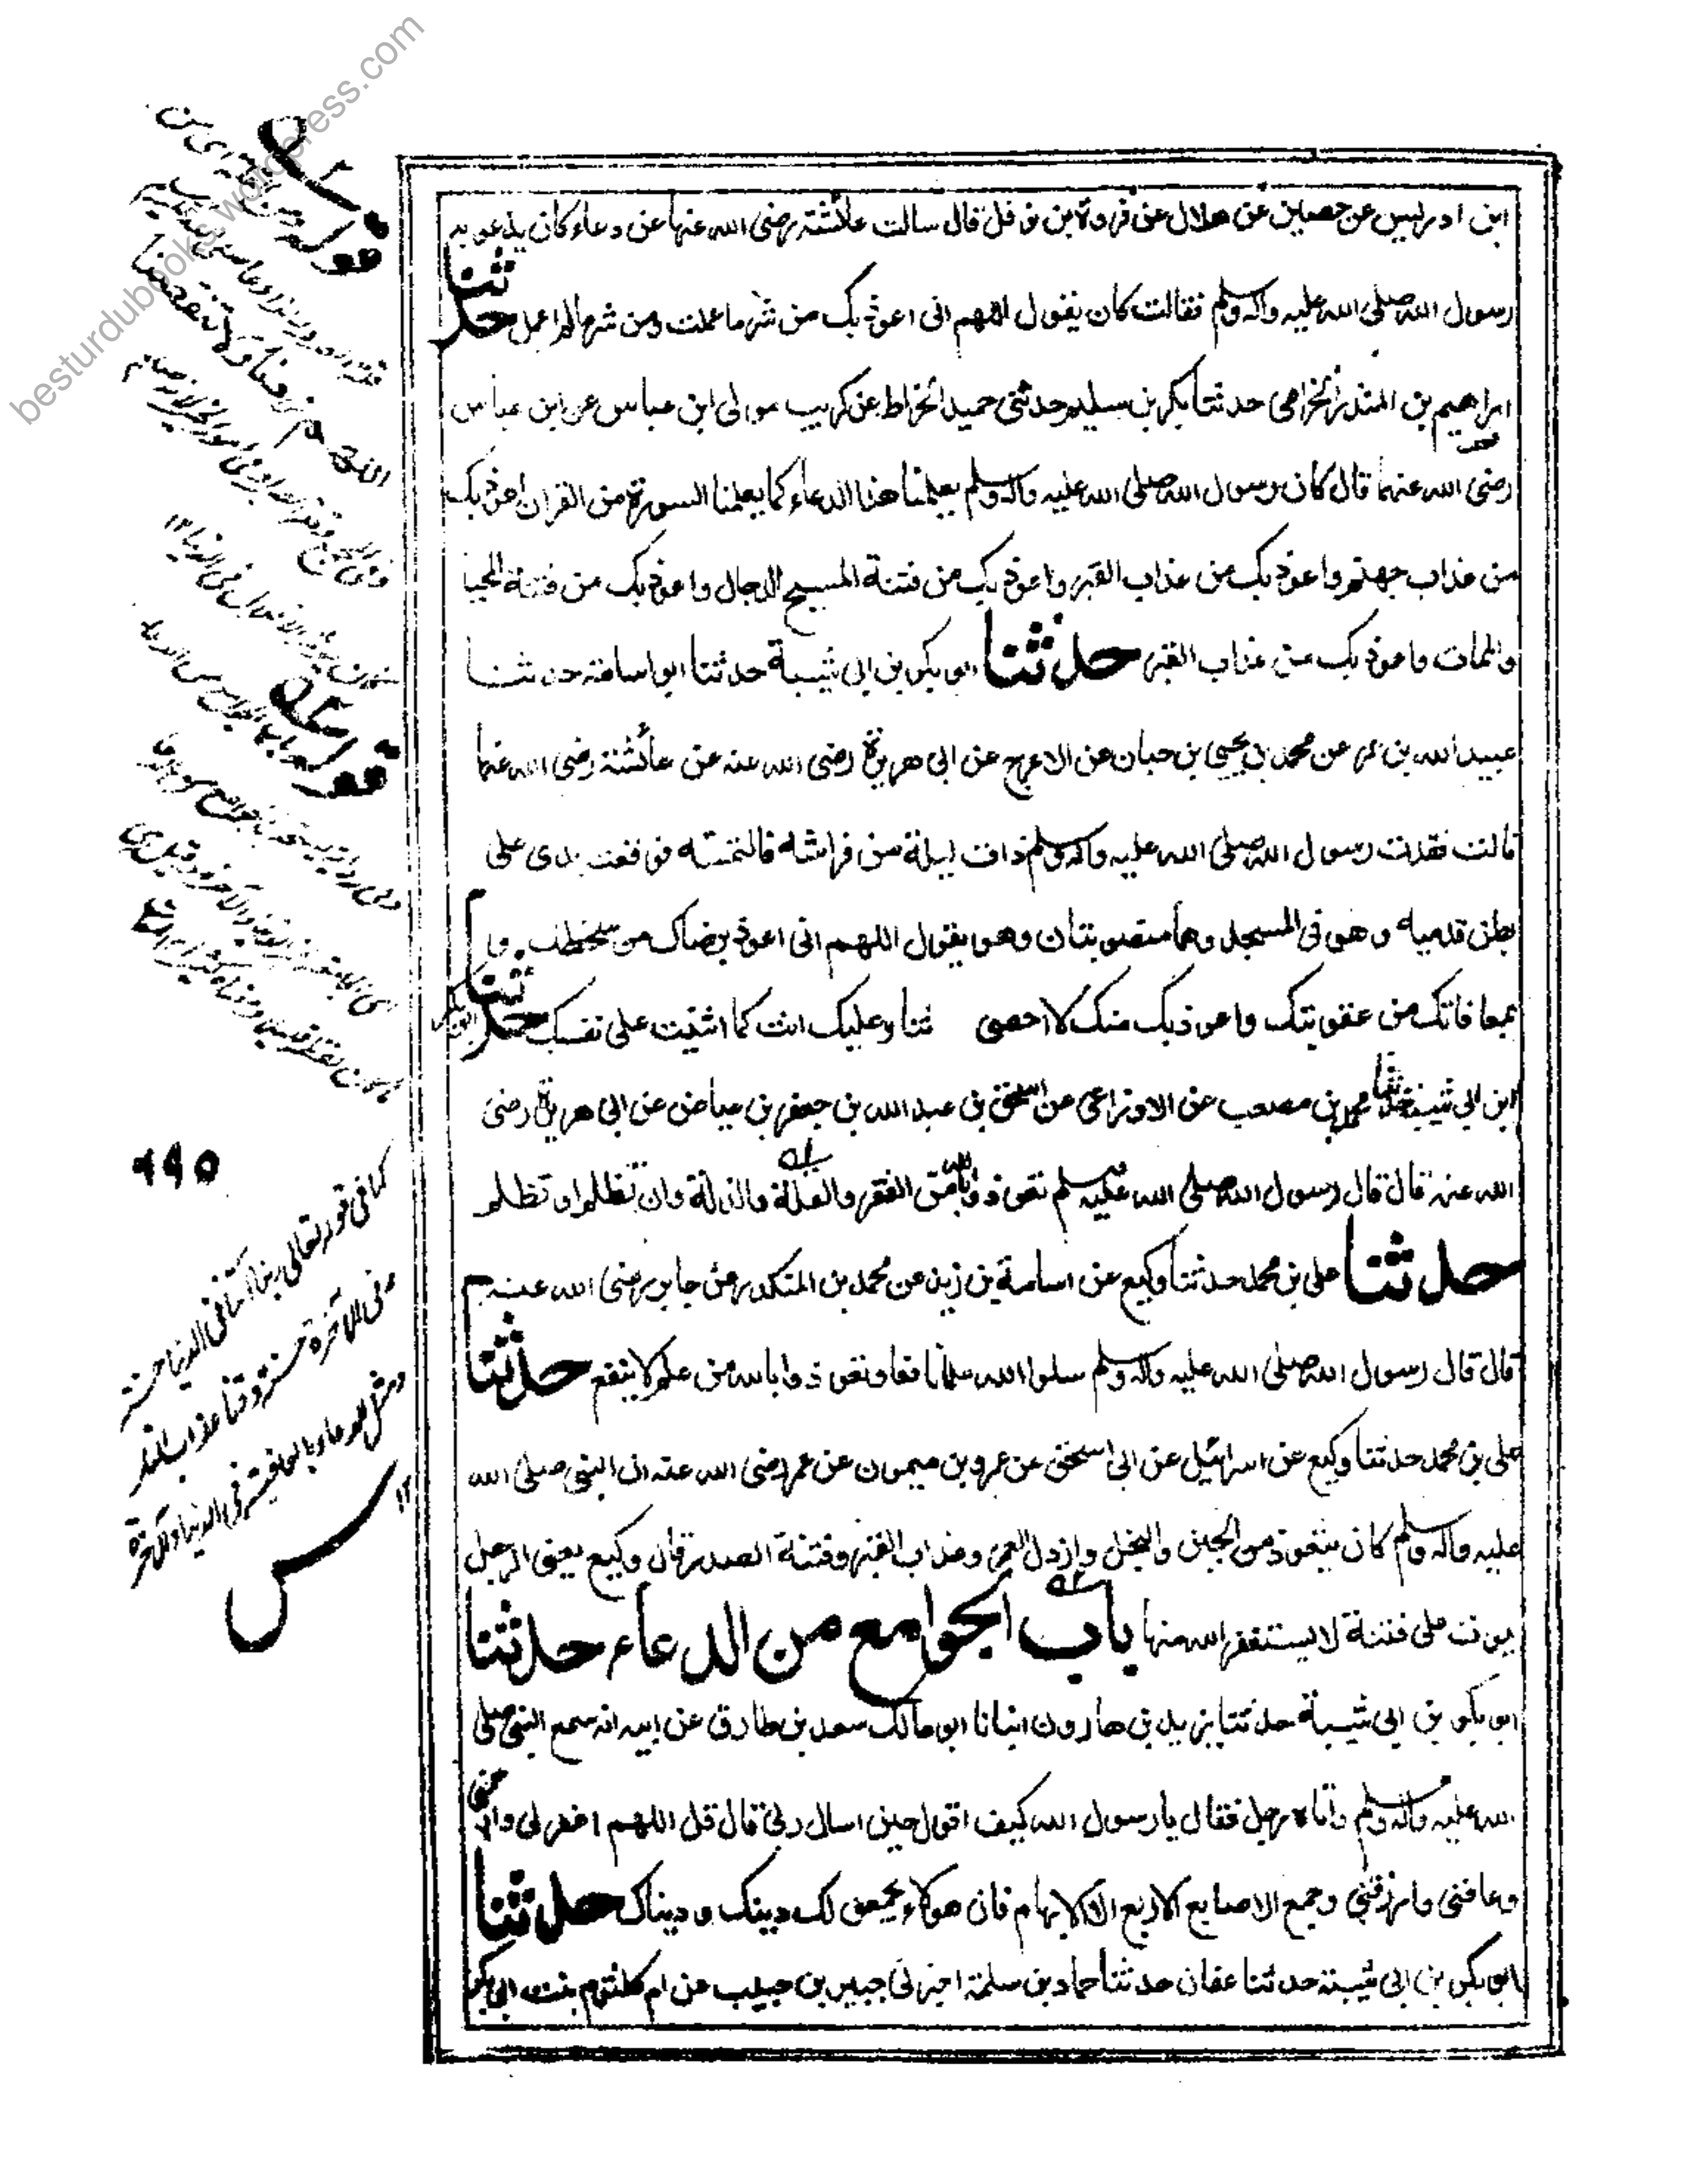 ابن ادريس عن حصين عن هلال عن فروة بن نوفل قال سالت عائشة رضى الله عنها عن دعاء كان يدعو به
رسول الله صلى الله عليه واله وسلم فقالت كان يقول اللهم انى اعوذ بك من شر ما عملت ومن شر ما لم اعمل حدثنا
ابراهيم بن المنذر الخزامى حدثنا بكر بن سليم حدثنى حميد الخراط عن كريب مولى ابن عباس عن ابن عباس
رضى الله عنهما قال كان رسول الله صلى الله عليه واله وسلم يعلمنا هذا الدعاء كما يعلمنا السورة من القران اعوذ بك
من عذاب جهنم واعوذ بك من عذاب القبر واعوذ بك من فتنة المسيح الدجال واعوذ بك من فتنة المحيا
والممات واعوذ بك من عذاب القبر حدثنا ابو بكر بن ابى شيبة حدثنا ابو اسامة حدثنا
عبيد الله بن عمر عن محمد بن يحيى بن حبان عن الاعرج عن ابى هريرة رضى الله عنه عن عائشة رضى الله عنها
قالت فقدت رسول الله صلى الله عليه واله وسلم ذات ليلة من فراشه فالتمسته فوقعت يدى على
بطن قدميه وهو فى المسجد وهما منصوبتان وهو يقول اللهم انى اعوذ برضاك من سخطك و
بمعافاتك من عقوبتك واعوذ بك منك لا احصى ثناء عليك انت كما اثنيت على نفسك حدثنا ابو بكر
ابن ابى شيبة حدثنا محمد بن مصعب عن الاوزاعى عن اسحق بن عبد الله بن جعفر بن عياض عن ابى هريرة رضى
الله عنه قال قال رسول الله صلى الله عليه وسلم تعوذوا بالله من الفقر والقلة والذلة وان تظلم او تظلم
حدثنا على بن محمد حدثنا وكيع عن اسامة بن زيد عن محمد بن المنكدر عن جابر رضى الله عنه
قال قال رسول الله صلى الله عليه واله وسلم سلوا الله علما نافعا وتعوذوا بالله من علم لا ينفع حدثنا
على بن محمد حدثنا وكيع عن اسرائيل عن ابى اسحق عن عمرو بن ميمون عن عمر رضى الله عنه ان النبى صلى الله
عليه واله وسلم كان يتعوذ من الجبن والبخل وارذل العمر وعذاب القبر وفتنة الصدر قال وكيع يعنى الرجل
يموت على فتنة لا يستغفر الله منها باب الجوامع من الدعاء حدثنا
ابو بكر بن ابى شيبة حدثنا يزيد بن هارون انبانا ابو مالك سعد بن طارق عن ابيه انه سمع النبى صلى
الله عليه واله وسلم واتاه رجل فقال يا رسول الله كيف اقول حين اسال ربى قال قل اللهم اغفر لى وارحمنى
وعافنى وارزقنى وجمع الاصابع الاربع الا الابهام فان هؤلاء يجمعن لك دينك ودنياك حدثنا
ابو بكر بن ابى شيبة حدثنا عفان حدثنا حماد بن سلمة اخبرنى جبير بن حبيب عن ام كلثوم بنت ابى بكر
قوله
قوله
۹۹۵
كما فى قوله تعالى ربنا آتنا فى الدنيا حسنة
وفى الآخرة حسنة وقنا عذاب النار
ومثل الدعاء بالعافية فى الدنيا والآخرة
۱۲
besturdubooks.wordpress.com